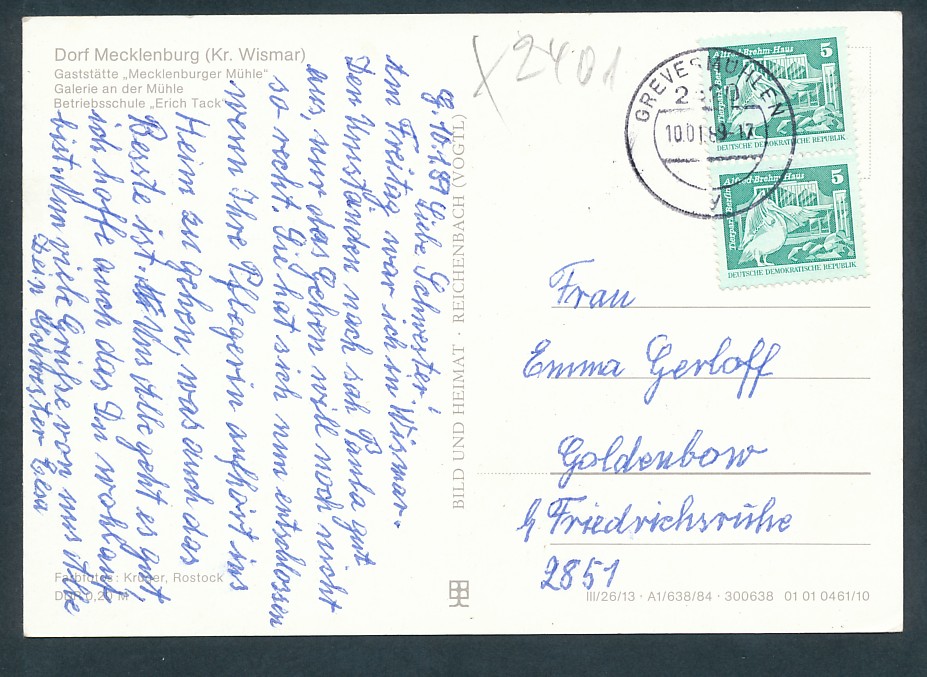 Dorf Mecklenburg (Kr. Wismar)
Gaststätte „Mecklenburger Mühle"
Galerie an der Mühle
Betriebsschule „Erich Tack"
G. 10.1.89 Liebe Schwester!
Am Freitag war ich in Wismar.
Den Umständen nach sah Paula gut
aus, nur das Gehen will noch nicht
so recht. Sie hat sich nun entschlossen
wenn Ihre Pflegerin aufhört ins
Heim zu gehen, was auch das
Besste ist. Uns Alle geht es gut,
ich hoffe auch das Du wohlauf
bist. Nun viele Grüße von uns Alle
Dein Schwester
Farbfotos: Krüger, Rostock
DDR 0,20 M
BILD UND HEIMAT · REICHENBACH (VOGTL)
X2401
GREVESMÜHLEN
10.01.89-17
y
Alfred-Brehm-Haus
5
Tierpark Berlin
DEUTSCHE DEMOKRATISCHE REPUBLIK
Alfred-Brehm-Haus
5
Tierpark Berlin
DEUTSCHE DEMOKRATISCHE REPUBLIK
Frau
Emma Gerloff
Goldenbow
b/ Friedrichsruhe
2851
III/26/13 · A1/638/84 · 300638 01 01 0461/10